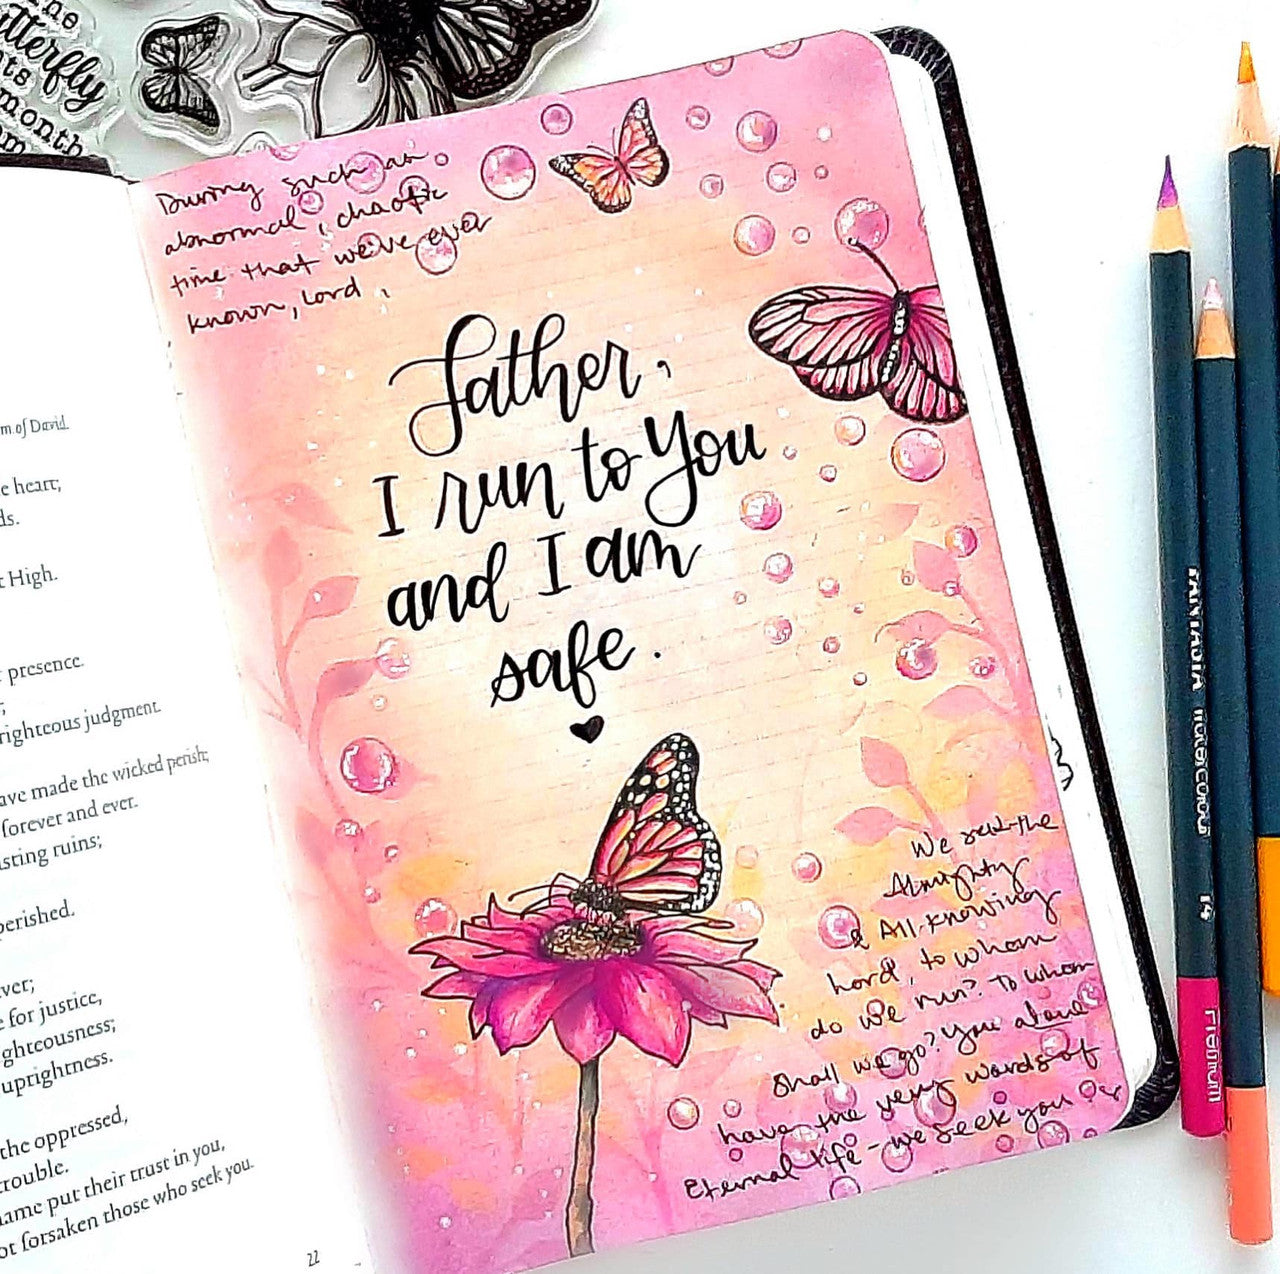 the
utterfly
ts
month
m
m of David.
e heart;
ds.
t High.
presence.
;
righteous judgment.
ave made the wicked perish;
forever and ever.
sting ruins;
perished.
ver;
e for justice,
ghteousness;
uprightness.
the oppressed,
trouble.
name put their trust in you,
ot forsaken those who seek you.
22
During such an
abnormal, chaotic
time that we've ever
known, Lord,
Father,
I run to You
and I am
safe.
We seek the
Almighty
& All-knowing
Lord, to whom
do we run? To whom
shall we go? You alone
have the very words of
Eternal life - we seek you
PANTASIA WATERCOLOR
14
Premium